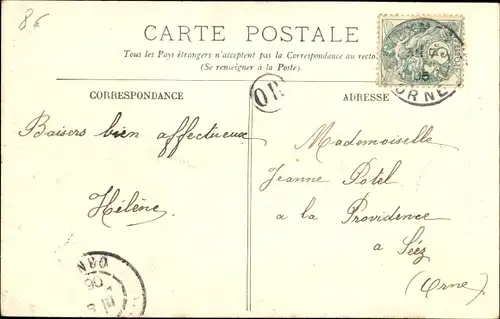 86
CARTE POSTALE
Tous les Pays étrangers n'acceptent pas la Correspondance au recto.
(Se renseigner à la Poste).
CORRESPONDANCE
ADRESSE
OR
ORNE
Baisers bien affectueux
Hélène
Mademoiselle
Jeanne Potel
a la Providence
a Séez
(Orne)
ORN
06